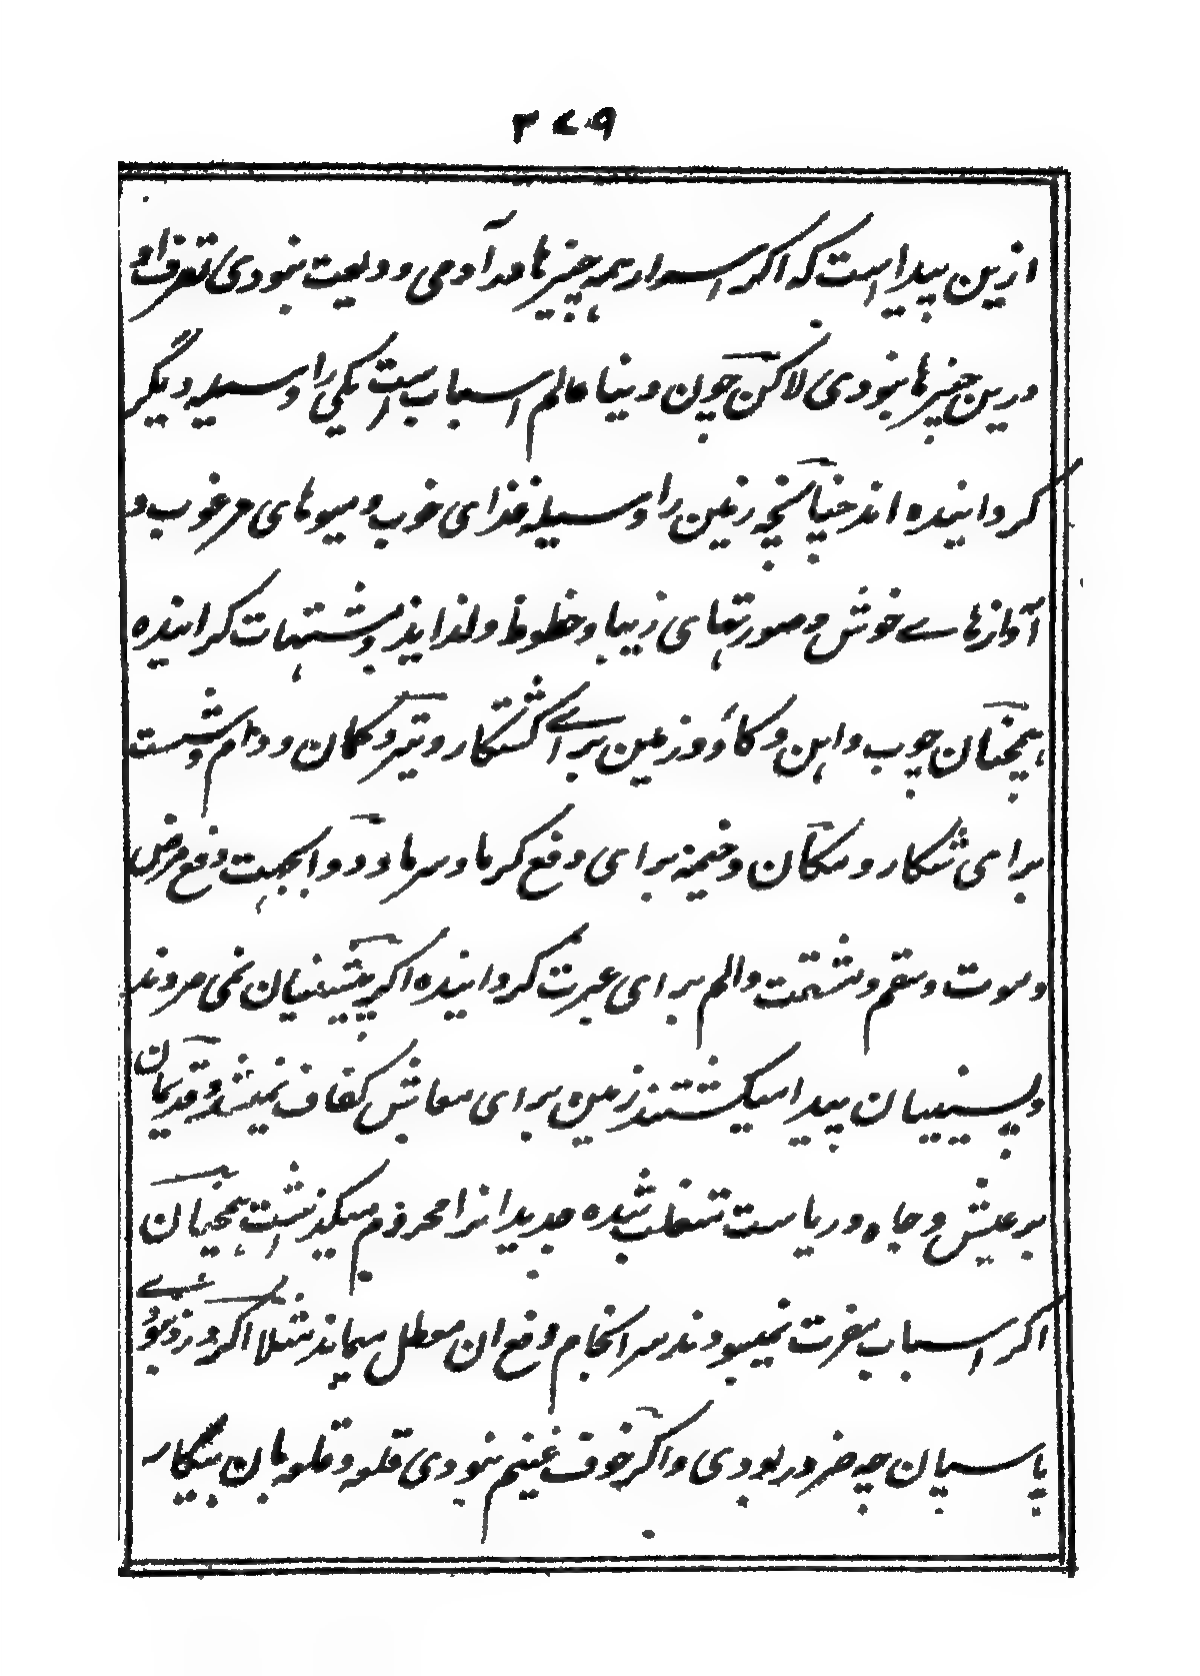 ۳۷۹
ازین پیدا است که اگر اسرار همه چیزها در آدمی ودیعت نبودی تصرف او
درین چیزها نبودی لاکن چون دنیا عالم اسباب است یکی را وسیله دیگر
گردانیده اند چنانچه زمین را وسیله غذای خوب و میوهای مرغوب و
آوازهاے خوش و صورتهای زیبا و حظوظ و لذایذ و مشتهات گرانیده
همچنان چوب و اهن و کاؤ و زمین براے کشتکار و تیر و کمان و دام و شست
برای شکار و مکان و خیمه برای دفع گرما و سرما و دوا بجهت دفع مرض
و موت و سقم و شتمت و الم برای عبرت گردانیده اگر پیشینیان نمی مردند
و پسینیان پیدا میگشتند زمین برای معاش کفاف نمیشد و قدیمان
بر عیش و جاه و ریاست متغلب شده جدیدانرا محروم میگذشت همچنان
اگر اسباب مضرت نمیبودند سرانجام دفع ان معطل میماند مثلا اگر دزد نبودے
پاسبان چه ضرور بودی و اگر خوف غنیم نبودی قلعه و قلعه بان بیکار